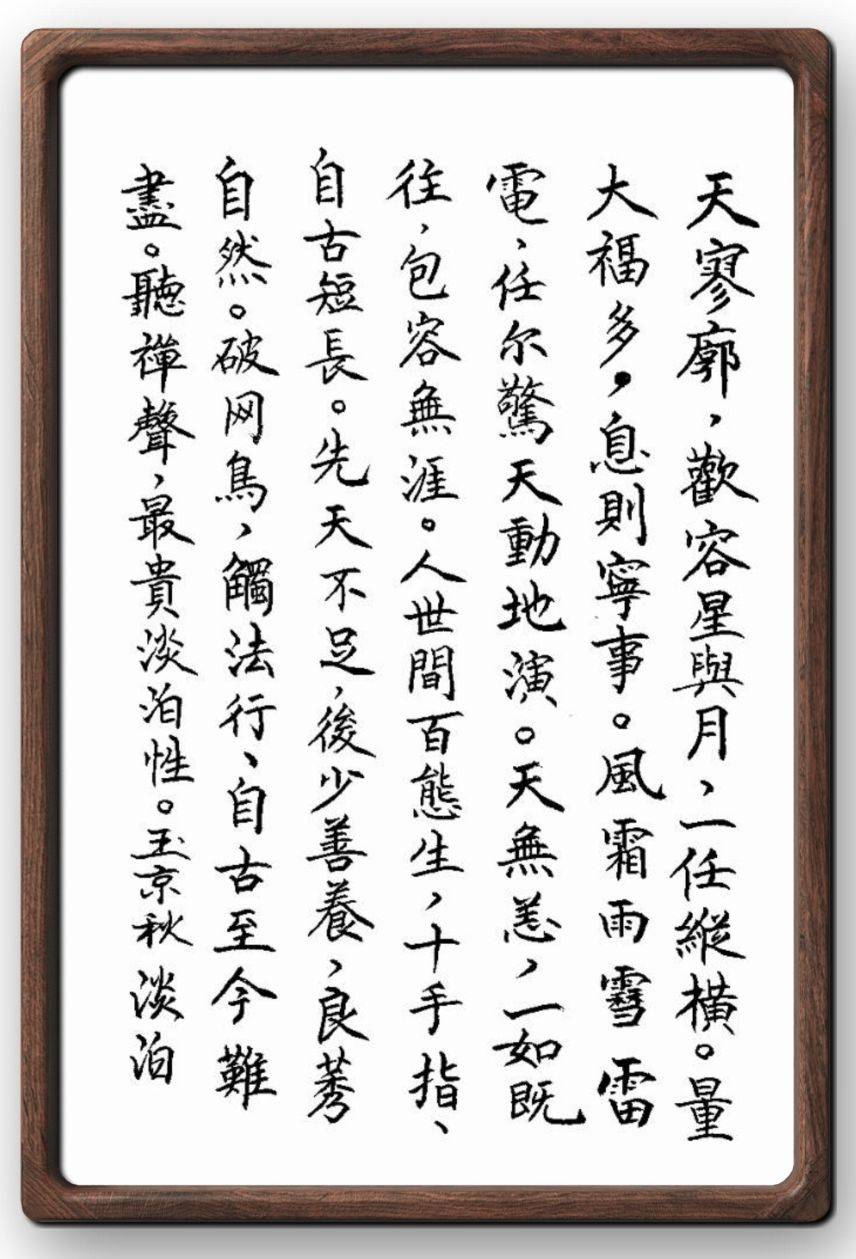 天寥廓，歡容星與月，一任縱橫。量
大福多，息則寧事。風霜雨雪雷
電，任尔驚天動地演。天無恙，一如既
往，包容無涯。人世間百態生，十手指、
自古短長。先天不足，後少善養，良莠
自然。破网鳥，觸法行、自古至今難
盡。聽禪聲，最貴淡泊性。玉京秋淡泊